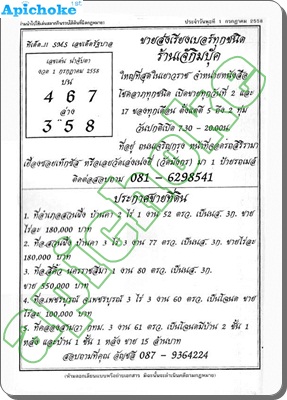 Apichoke 1st.
ประจำวันพุธที่ 1 กรกฎาคม 2558
ทีเด็ด.11 SMS เลขเด็ดรัฐบาล
งวด 1 กรกฎาคม 2558
บน
4 6 7
ล่าง
3 5 8
ขายส่งเรียงเบอร์ทุกชนิด
ร้านเจ๊กิมบุ๊ค
ใหญ่ที่สุดในเยาวราช จำหน่ายหนังสือ
โชคลาภทุกชนิด เปิดขายทุกวันที่ 2 และ
17 ของทุกเดือน ตั้งแต่ตี 5 ถึง 2 ทุ่ม
วันปกติเปิด 7.30 - 20.00น.
ที่อยู่ ถนนเจริญกรุง
เยื้องซอยเท็กซัส หรือเลยวัดเล่งเน่ยยี่ (วัดมังกร) มา 1 ป้ายรถเมล์
ติดต่อสอบถาม 081 - 6298541
ประกาศขายที่ดิน
1. ที่อำเภอสวนผึ้ง บ้านคา 2 ไร่ 1 งาน 52 ตรว. เป็นนส. 3ก. ขาย
ไร่ละ 180,000 บาท
2. ที่สวนผึ้ง บ้านคา 3 ไร่ 3 งาน 77 ตรว. เป็นนส. 3ก. ขายไร่ละ
180,000 บาท
3. ที่อ.สีคิ้ว นครราชสีมา 1 งาน 80 ตรว. เป็นนส. 3ก.
ขาย 550,000 บาท
4. ที่จ.เพชรบูรณ์ อ.เพชรบูรณ์ 3 ไร่ 3 งาน 60 ตรว. เป็นโฉนด ขาย
ไร่ละ 100,000 บาท
5. ที่คลองสามวา กทม. 3 งาน 61 ตรว. เป็นโฉนดมีบ้าน 2 ชั้น 1
หลัง และบ้าน 1 ชั้น 1 หลัง ขาย 15 ล้านบาท
สอบถามที่คุณ อัญชลี 087 - 9364224
apichoke